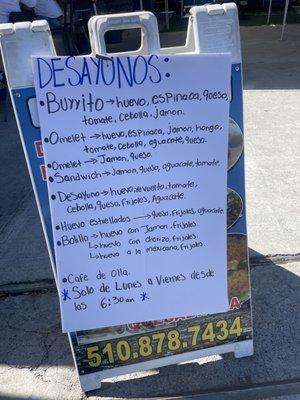 DESAYUNOS:
• Burrito → huevo, espinaca, queso,
tomate, cebolla, jamon.
• Omelet → huevo, espinaca, jamon, hongo,
tomate, cebolla, aguacate, queso.
• Omelet → Jamon, queso.
• Sandwich → jamon, queso, aguacate, tomate.
• Desayuno → huevo revuelto, tomate,
cebolla, queso, frijoles, Aguacate.
• Huevo estrellados → queso, frijoles, aguacate.
• Bolillo → huevo con Jamon, frijoles.
↳ huevo con chorizo, frijoles.
↳ huevo a la mexicana, frijoles.
• Cafe de olla.
* Solo de Lunes a Viernes desde
las 6:30am *
510.878.7434